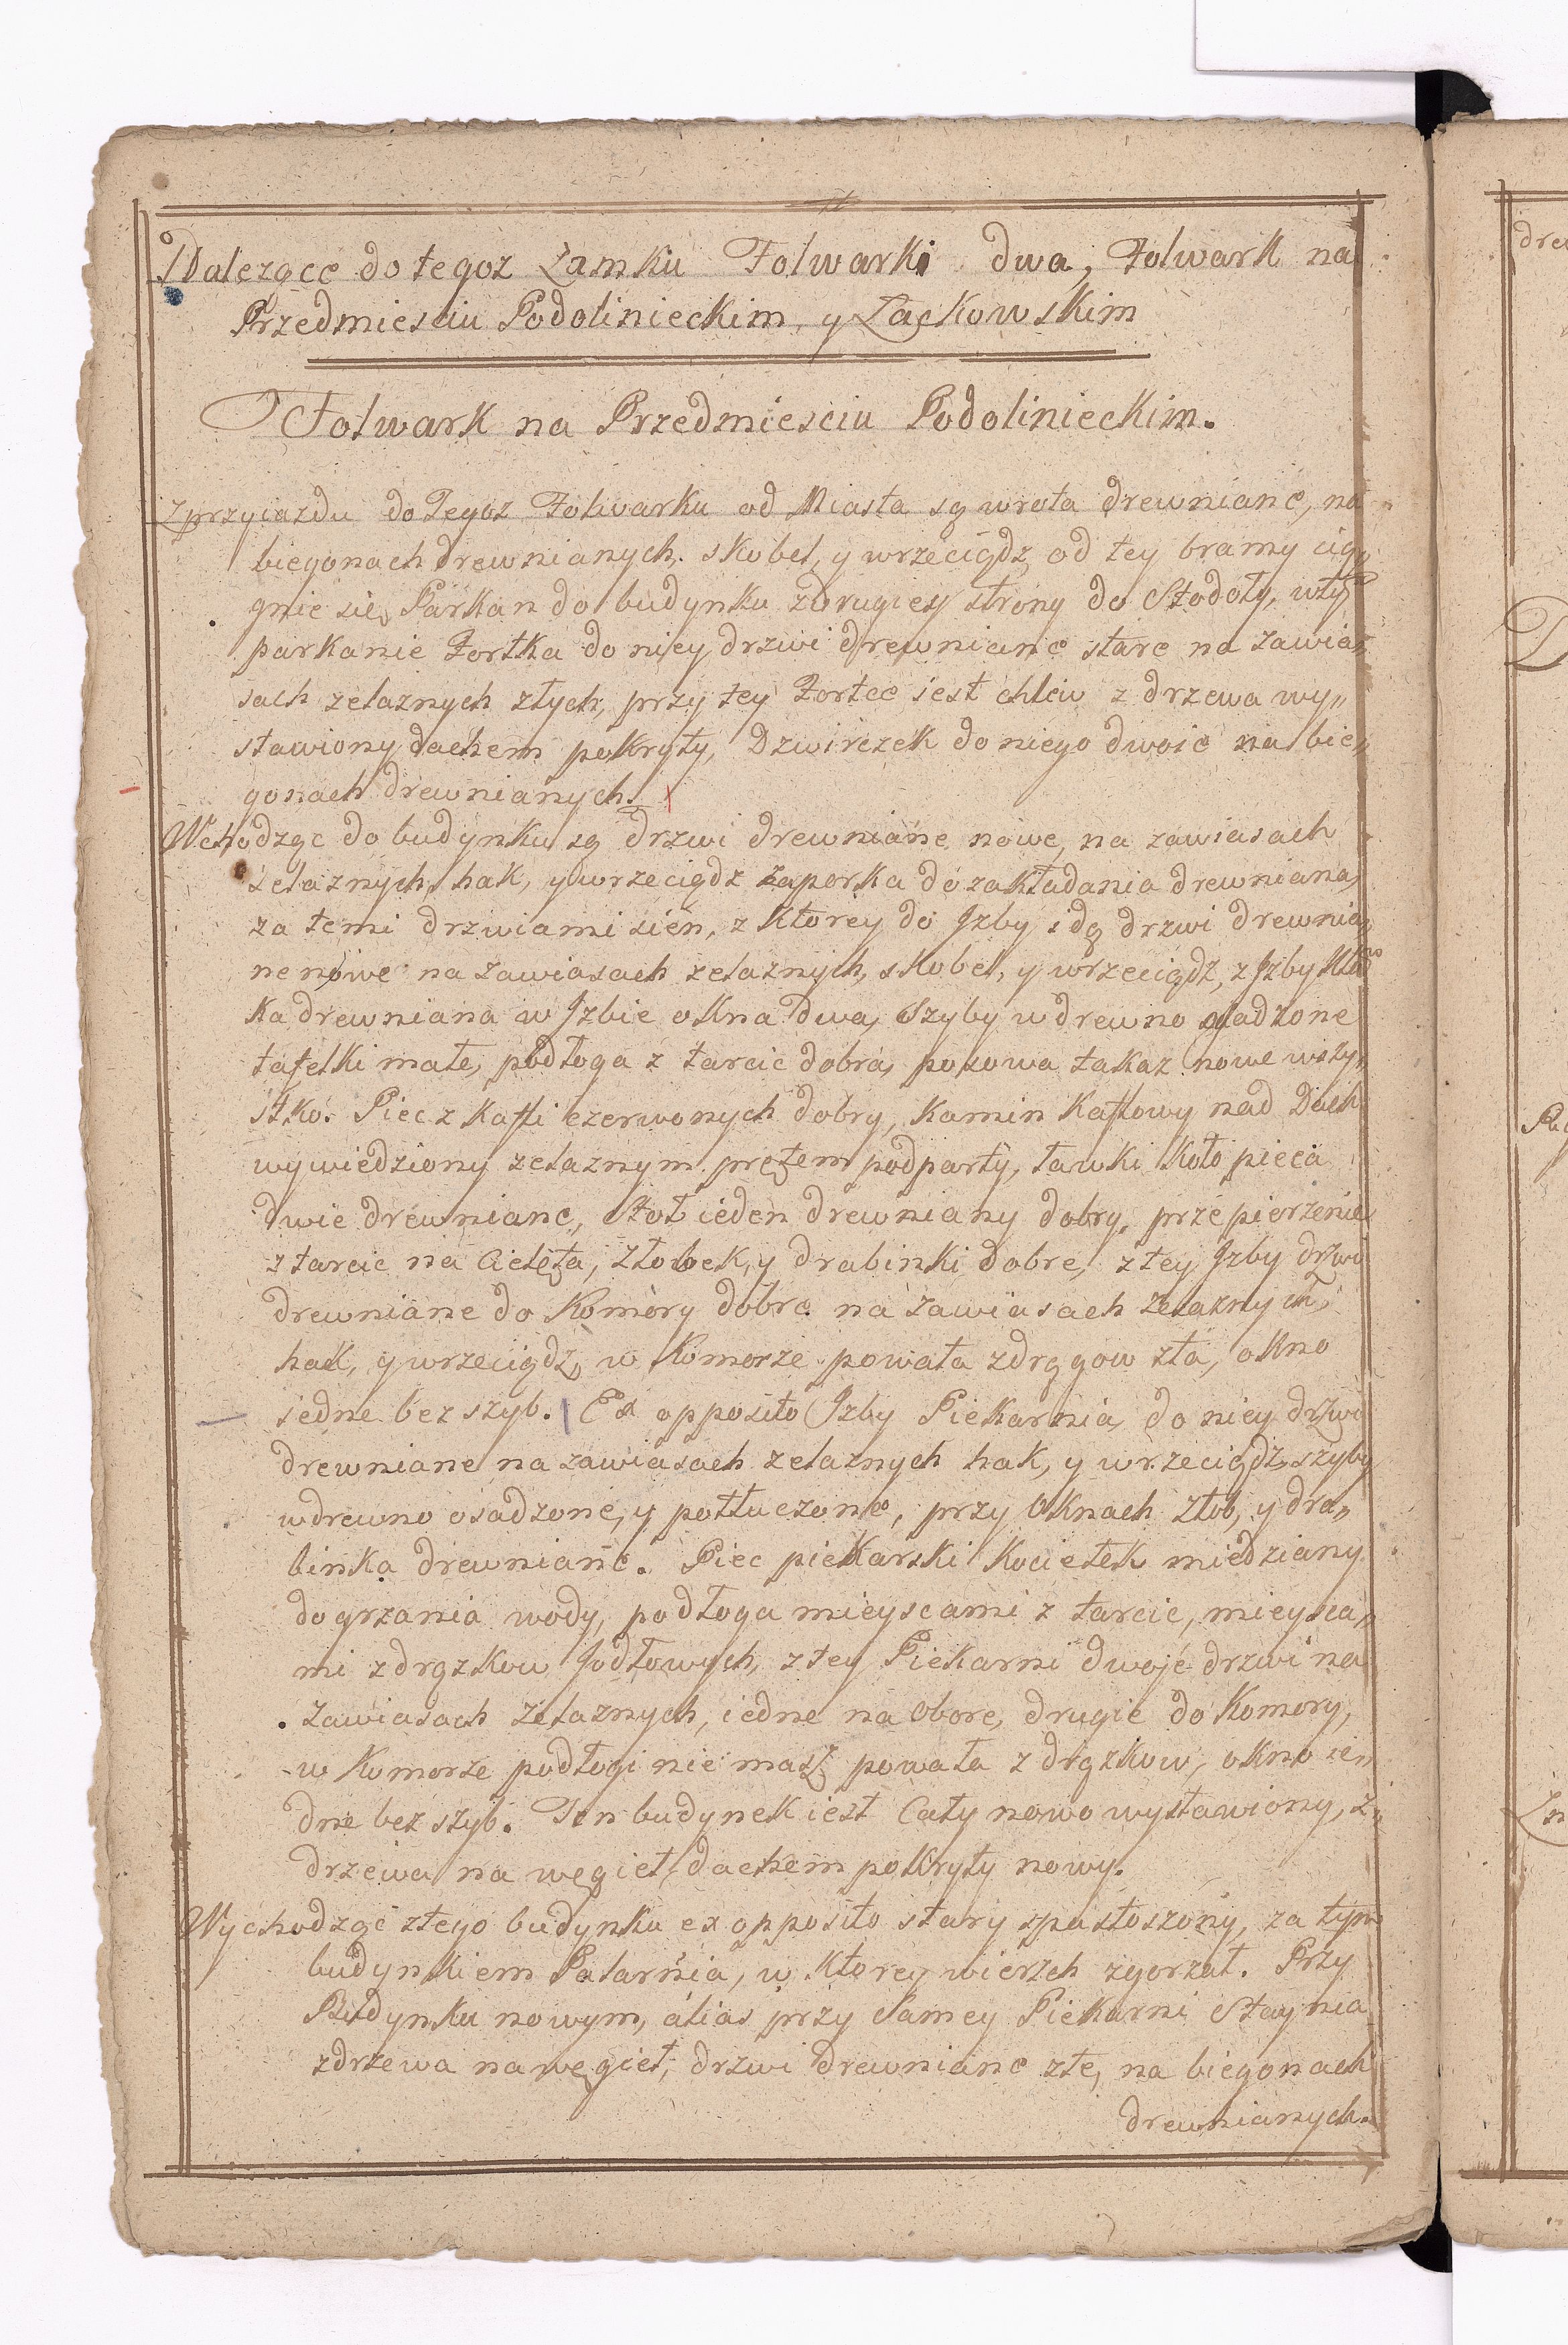 Należące do tegoz Zamku Folwarki dwa, Folwark na
Przedmiesciu Podolinieckim, y Lackowskim
Folwark na Przedmiesciu Podolinieckim.
Zprzyiazdu do Tegoz Folwarku od Miasta są wrota drewniane, na
biegonach drewnianych. skobel, y wrzeciądz, od tey bramy cią„
gnie się Parkan do budynku zdrugiey strony do Stodoły, wtym
parkanie Fortka do niey drzwi drewniane stare na zawia„
sach zelaznych złych, przy tey Fortce iest chliw z drzewa wy„
stawiony dachem pokryty, Dzwirczek do niego dwoie na bie„
gonach drewnianych.
Wchodząc do budynku są drzwi drewniane nowe, na zawiasach
zelaznych, hak, y wrzeciądz zaporka do zakładania drewniana,
za temi drzwiami sień, z ktorey do Jzby idą drzwi drewnia„
ne nowe na zawiasach zelaznych, skobel, y wrzeciądz, z Jzby klam„
ka drewniana w Jzbie okna dwa, Szyby w drewno osadzone
tafelki małe, podłoga z tarcic dobra, posowa takaz nowe wszy„
stko. Piec z kafli czerwonych dobry, kamin kaflowy nad Dach
wywiedziony zelaznym prętem podparty, ławki koło pieca
dwie drewniane, Stoł ieden drewniany dobry, przepierzenie
z tarcic na Cielęta, złobek, y drabinki dobre, z tey Jzby drzwi
drewniane do Komory dobre na zawiasach zelaznych,
hak, y wrzeciądz, w Komorze powała zdrągow zła, okno
iedne bez szyb. Ex opposito Jzby Piekarnia, do niey drzwi
drewniane na zawiasach zelaznych hak, y wrzeciądz, szyby
wdrewno osadzone, y potłuczone, przy Oknach złob, y dra„
binka drewniane. Piec piekarski kociełek miedziany
do grzania wody, podłoga mieyscami z tarcic, mieysca„
mi zdrązkow Jodłowych, z tey Piekarni dwoje drzwi na
zawiasach zelaznych, iedne na Oborę, drugie do Komory,
w Komorze podłogi nie masz powała z drązkow, okno ie„
dne bez szyb. Ten budynek iest Cały nowo wystawiony, z„
drzewa na węgieł, dachem pokryty nowy.
Wychodząc ztego budynku ex opposito stary spustoszony, za tym
budynkiem Palarnia, w ktorey wierzch zgorzał. Przy
Budynku nowym, alias przy Samey Piekarni Staynia
zdrzewa na węgieł, drzwi drewniane złe, na biegonach
drewnianych.